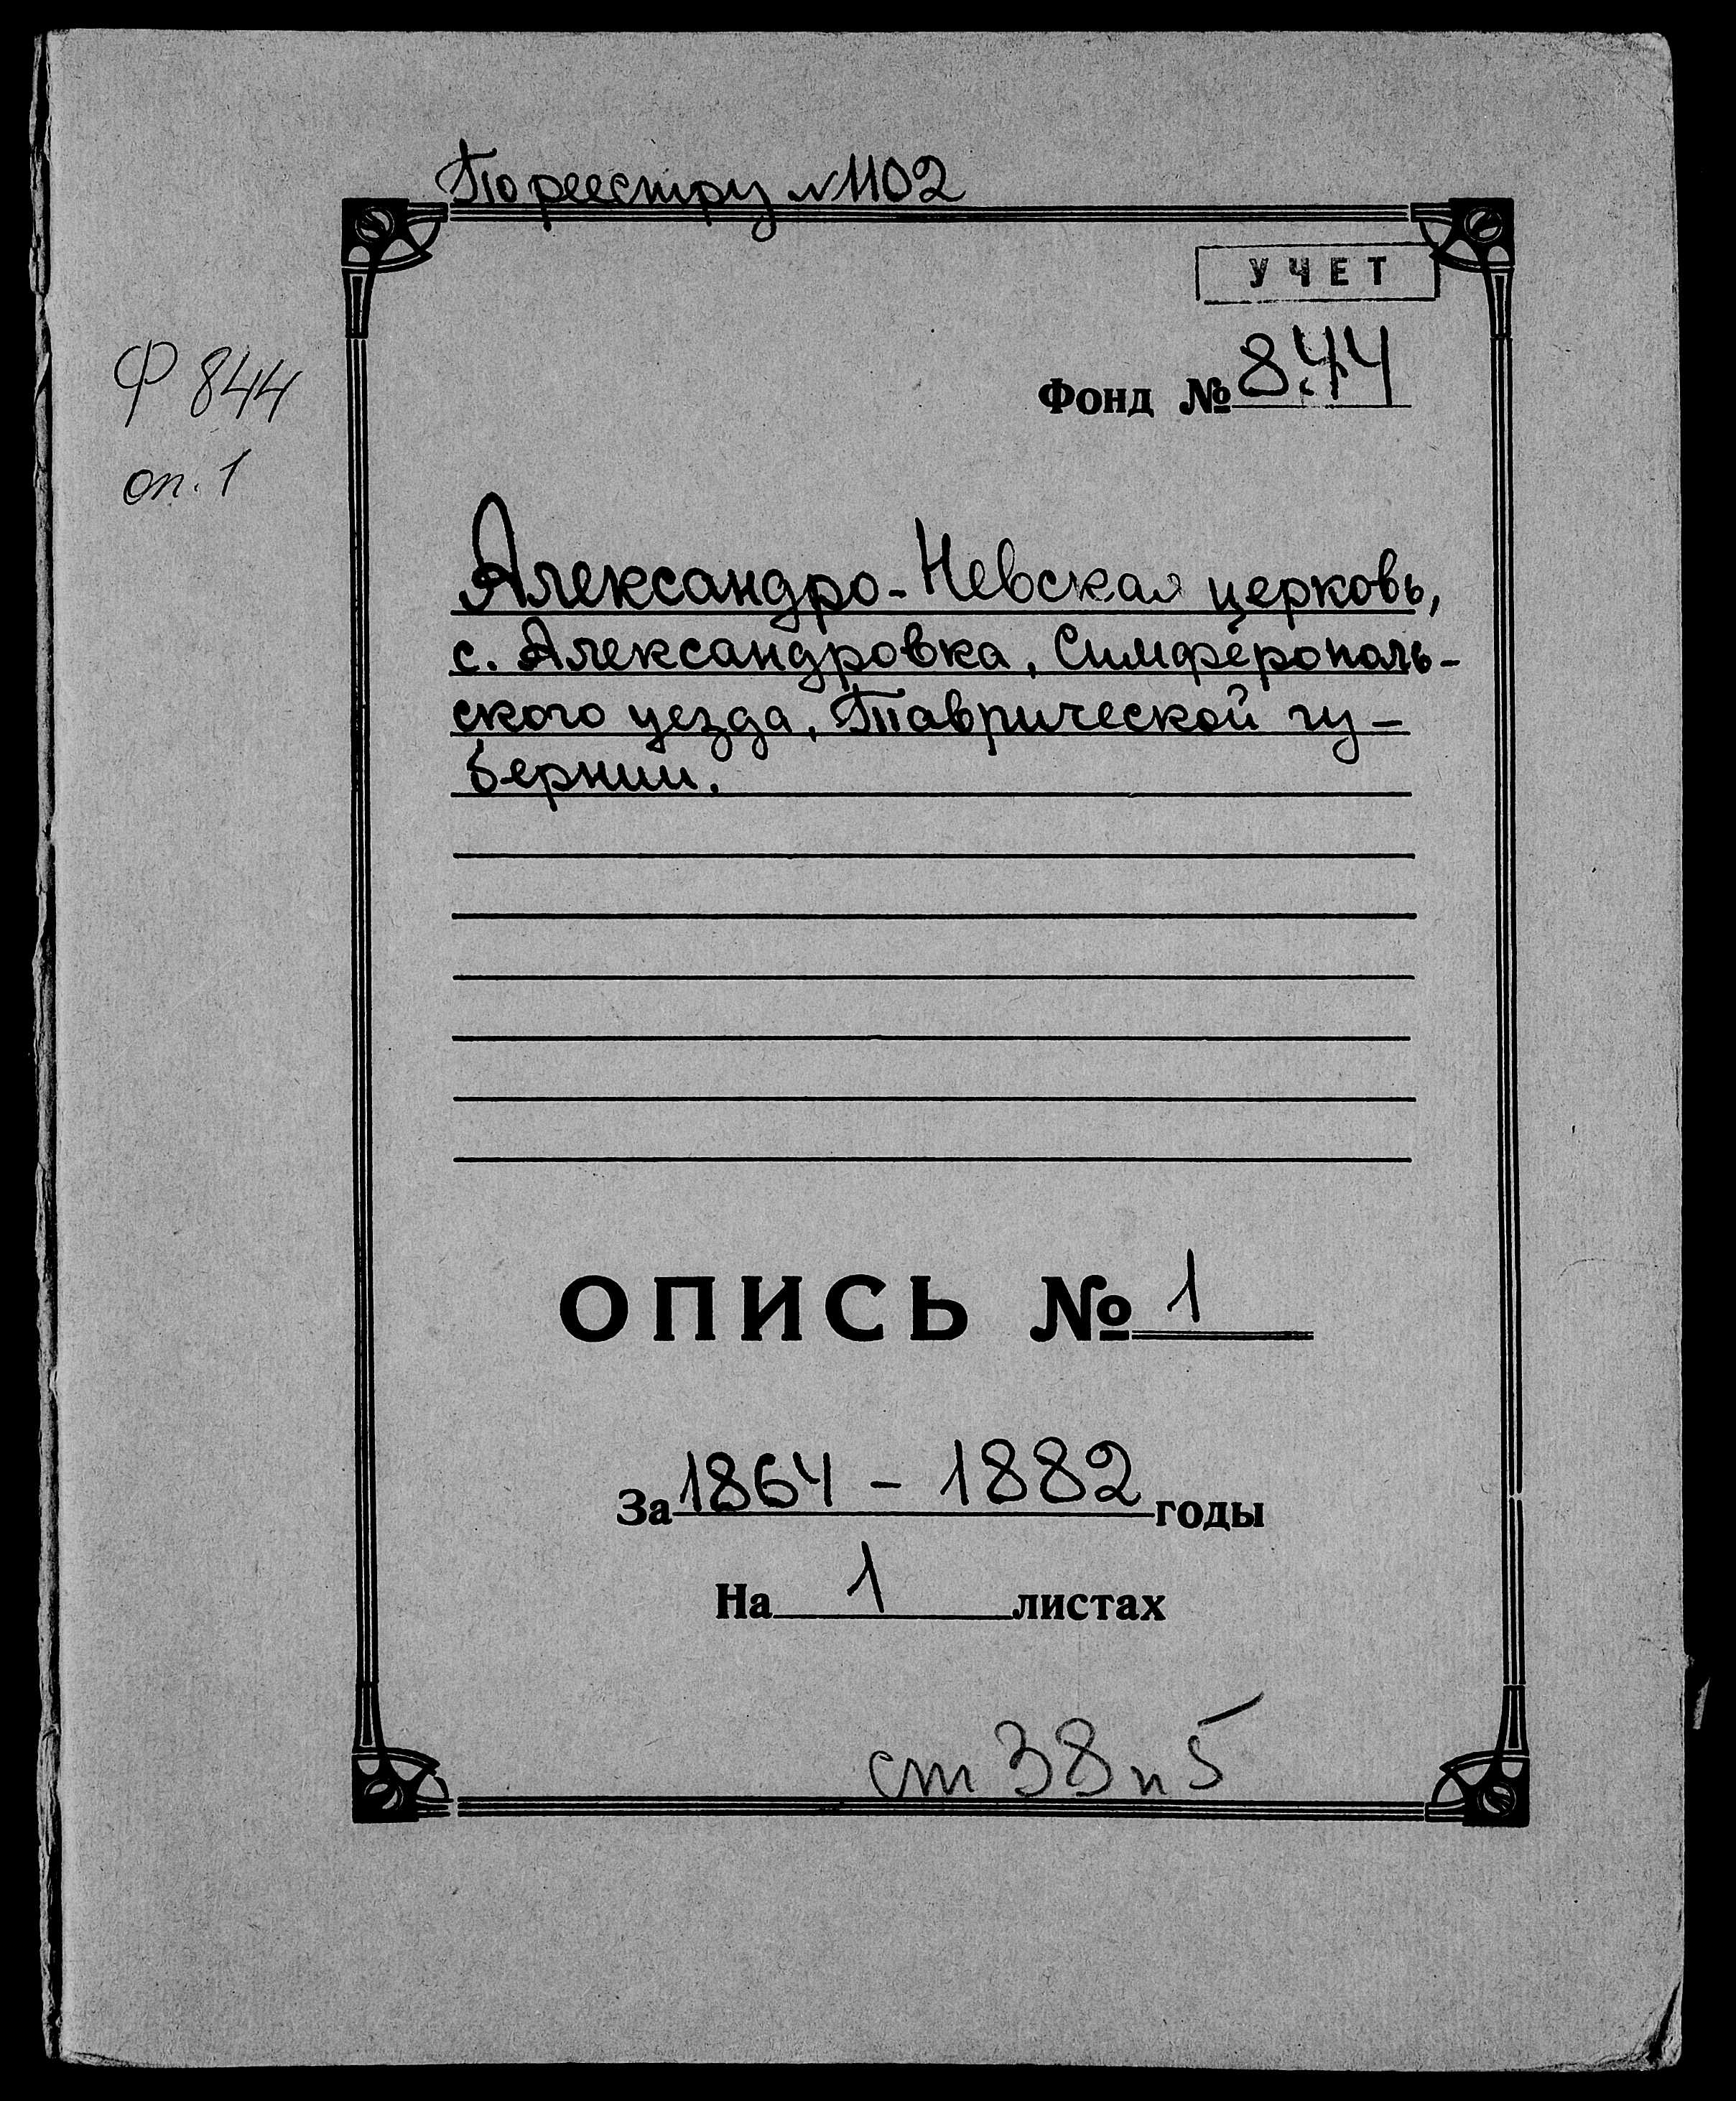 По реестру №1102
УЧЕТ
Фонд № 844
Ф 844
оп. 1
Александро-Невская церковь,
с. Александровка, Симферополь-
ского уезда, Таврической гу-
бернии.
ОПИСЬ № 1
За 1864 - 1882 годы
На 1 листах
ст 38 п 5